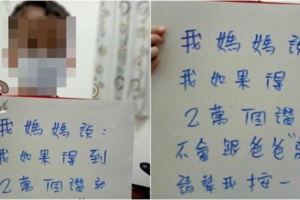 我媽媽說:
我如果得到
2萬個讚就
我媽媽說
我如果得
2萬個讚
不會跟爸爸
請幫我按一